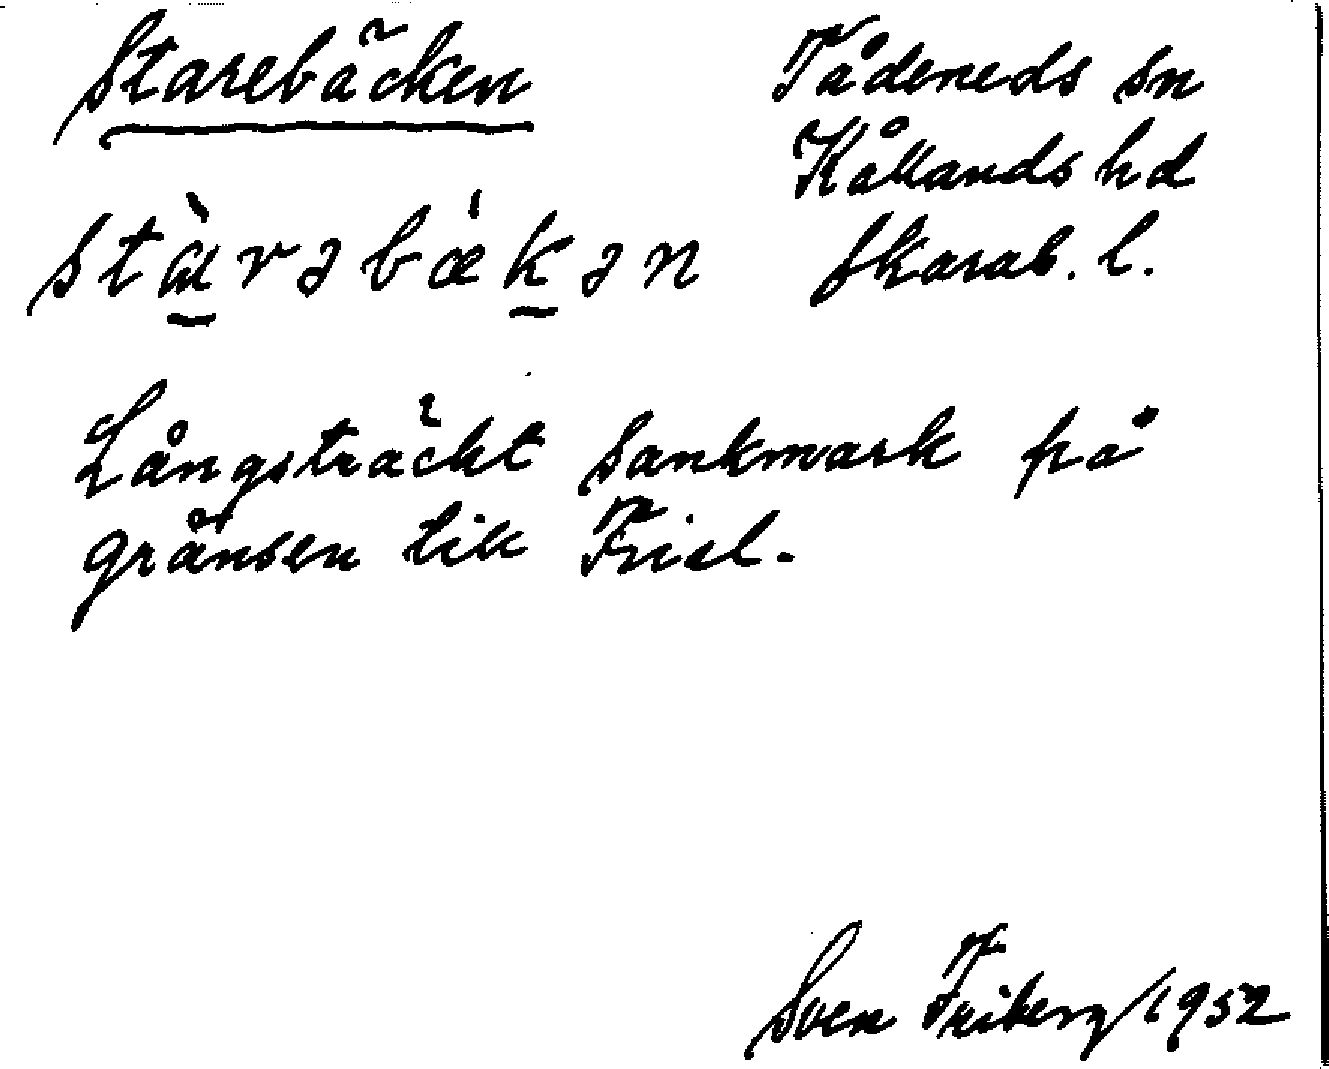 Starebäcken
Tådeneds sn
Kållands hd
stàrəbǽkən
Skarab. l.
Långsträckt sankmark på
gränsen till Friel.
Sven Friberg/1952